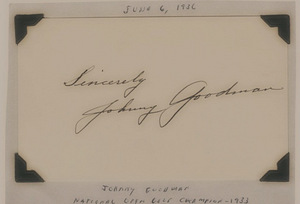 JUNE 6, 1936
Sincerely
Johnny Goodman
JOHNNY GOODMAN
NATIONAL OPEN GOLF CHAMPION - 1933